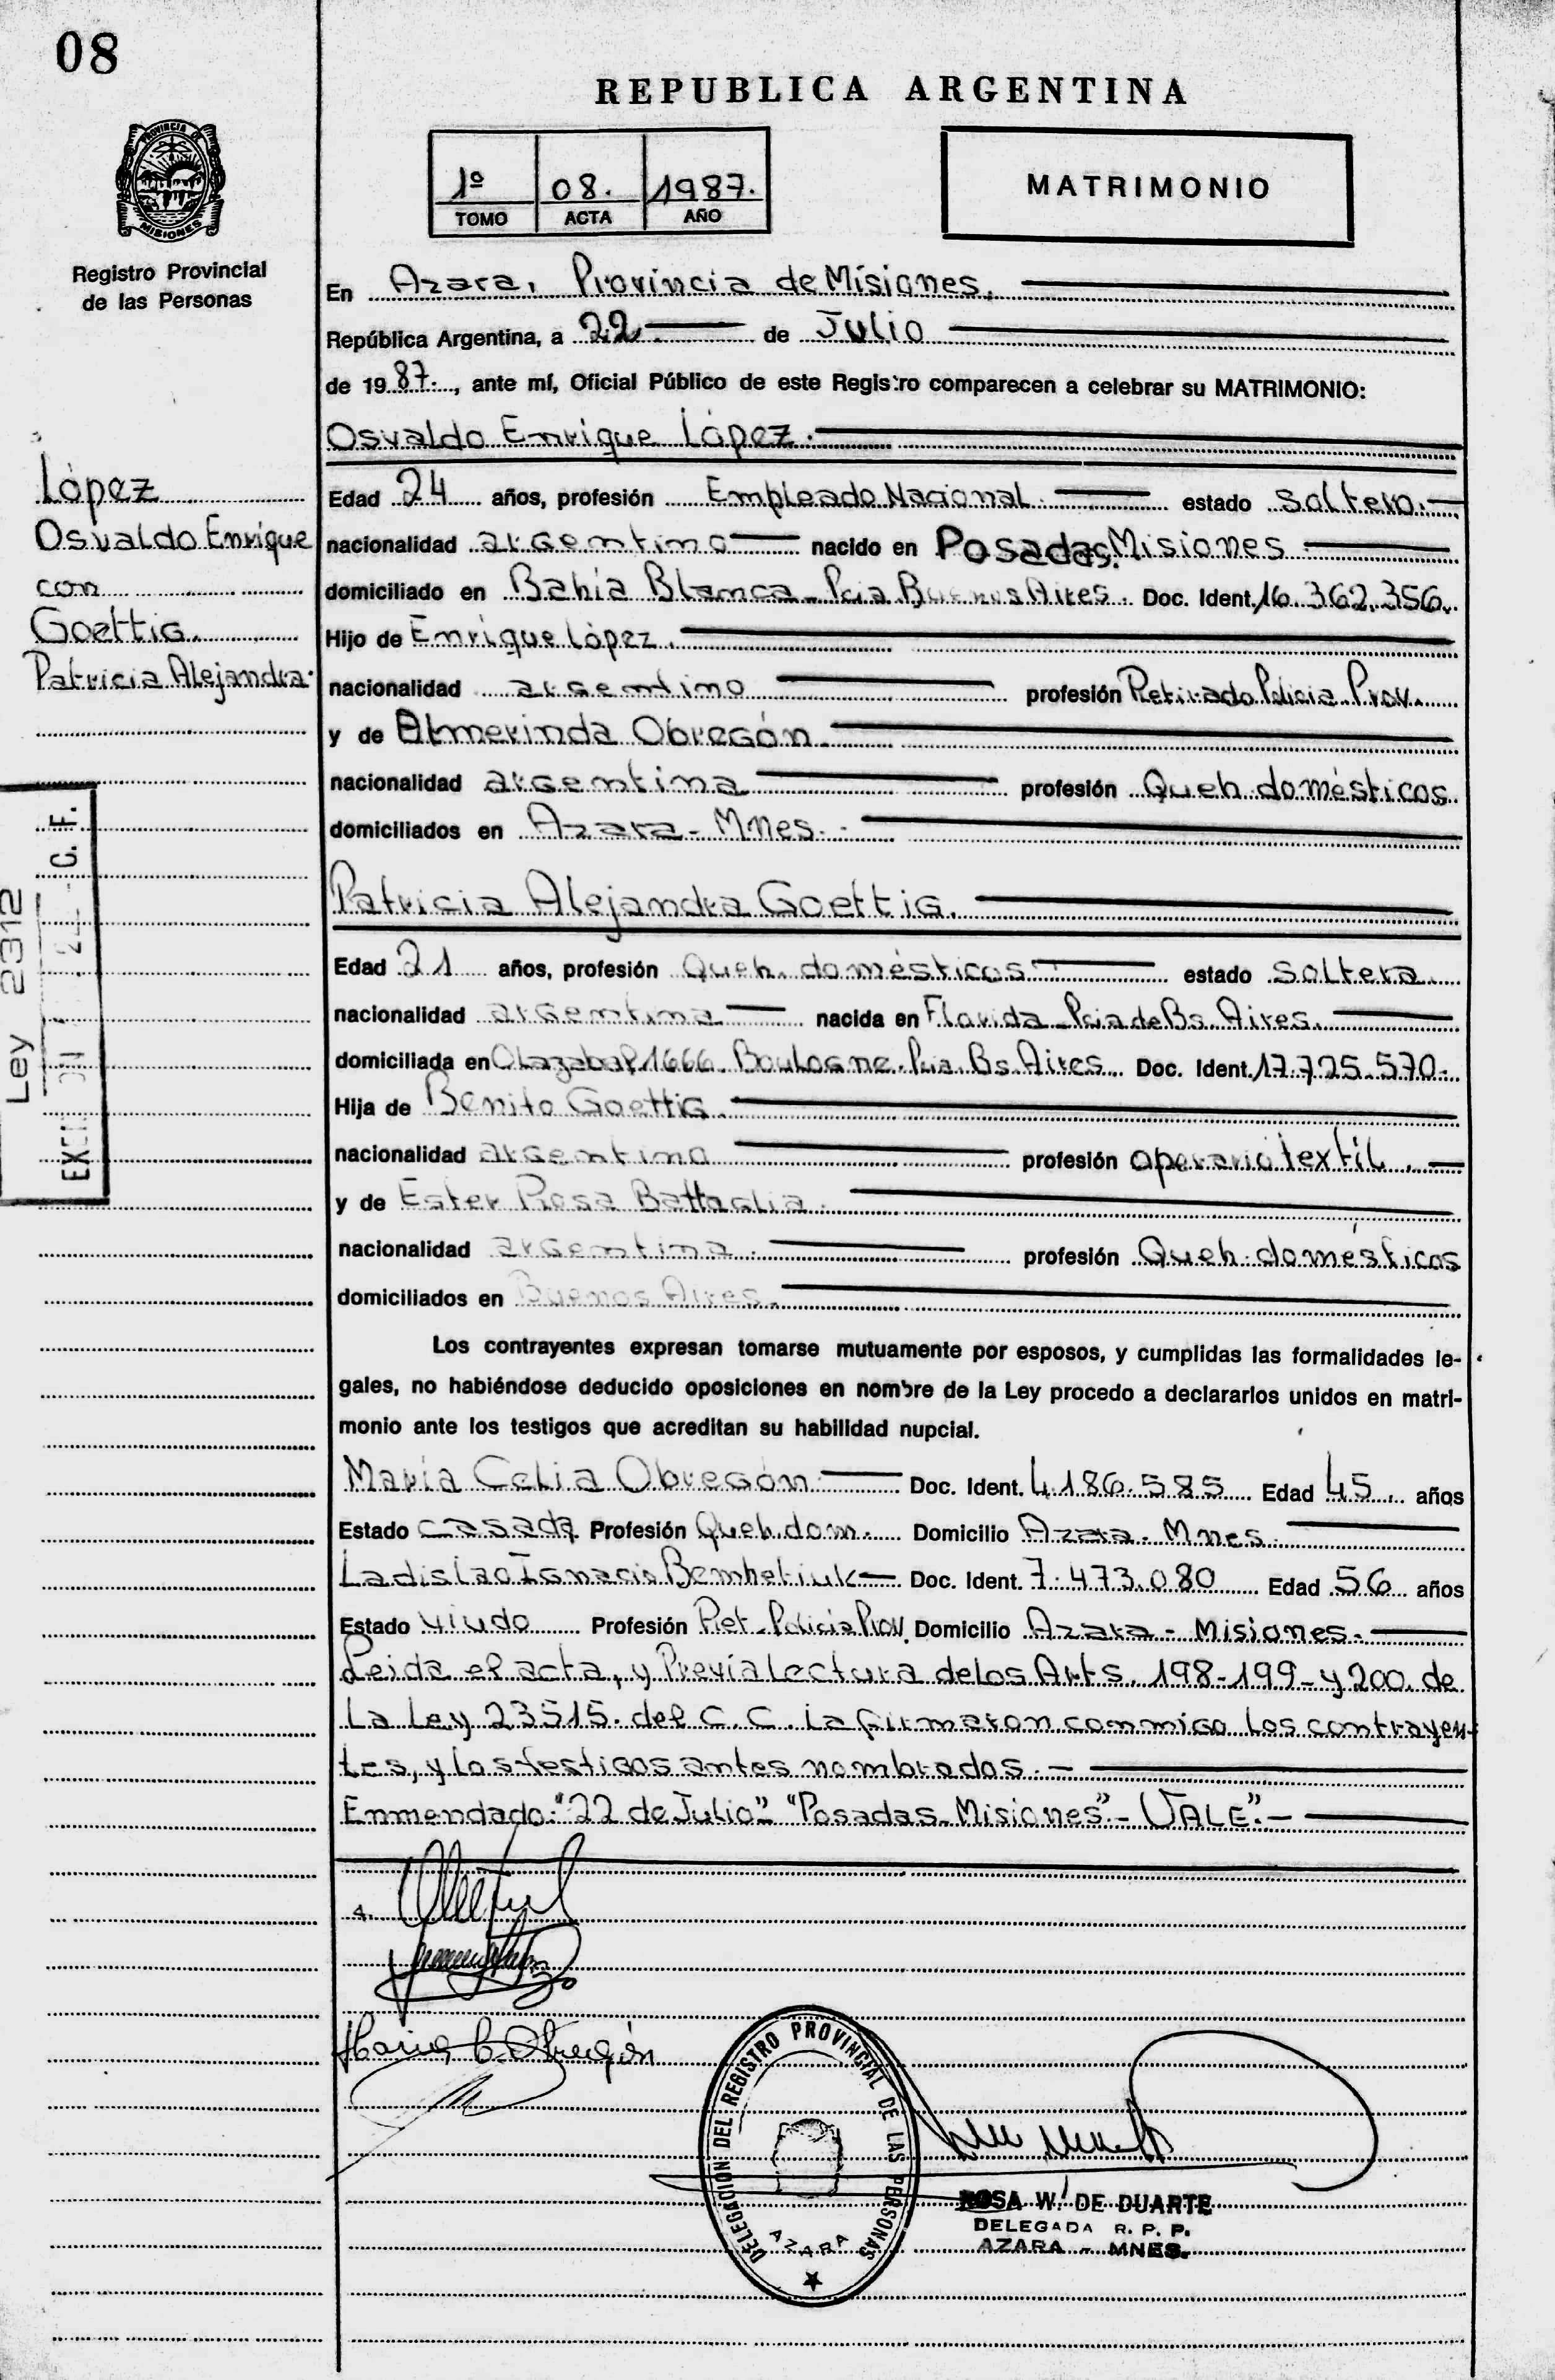 08
REPUBLICA ARGENTINA
1º 08. 1987.
TOMO ACTA AÑO
MATRIMONIO
PROVINCIA DE
MISIONES
Registro Provincial
de las Personas
En Azara, Provincia de Misiones.
República Argentina, a 22 de Julio
de 1987., ante mí, Oficial Público de este Registro comparecen a celebrar su MATRIMONIO:
Osvaldo Enrique López.
López
Osvaldo Enrique
con
Goettig.
Patricia Alejandra
Edad 24 años, profesión Empleado Nacional. estado soltero.
nacionalidad argentino nacido en Posadas, Misiones
domiciliado en Bahía Blanca - Pcia Buenos Aires. Doc. Ident. 16.362.356.
Hijo de Enrique López.
nacionalidad argentino profesión Retirado Policia Prov.
y de Almerinda Obregón.
nacionalidad argentina profesión Queh domésticos.
domiciliados en Azara - Mnes.
Patricia Alejandra Goettig.
Edad 21 años, profesión Queh. domésticos estado soltera
nacionalidad argentina nacida en Florida - Pcia de Bs. Aires.
domiciliada en Olazabal 1666. Boulogne. Pcia. Bs. Aires. Doc. Ident. 17.725.570.
Hija de Benito Goettig.
nacionalidad argentino profesión operario textil.
y de Ester Rosa Battaglia.
nacionalidad argentina. profesión Queh. domésticos
domiciliados en Buenos Aires.
Ley 2312
C. F.
Los contrayentes expresan tomarse mutuamente por esposos, y cumplidas las formalidades le-
gales, no habiéndose deducido oposiciones en nombre de la Ley procedo a declararlos unidos en matri-
monio ante los testigos que acreditan su habilidad nupcial.
María Celia Obregón Doc. Ident. 4.186.585 Edad 45 años
Estado casada Profesión Queh. dom. Domicilio Azara - Mnes.
Ladislao Ignacio Doc. Ident. 7.473.080 Edad 56 años
Estado viudo Profesión Ret. Policia Prov. Domicilio Azara - Misiones.
Leida el acta, y Previa Lectura de los Arts. 198-199-y 200. de
La Ley 23515. del C. C. la firmaron conmigo los contrayen-
tes, y los testigos antes nombrados.-
Enmendado: "22 de Julio" "Posadas - Misiones" - VALE".-
Maria C. Obregón
DELEGACION DEL REGISTRO PROVINCIAL DE LAS PERSONAS
AZARA
ROSA W. DE DUARTE
DELEGADA R. P. P.
AZARA - MNES.